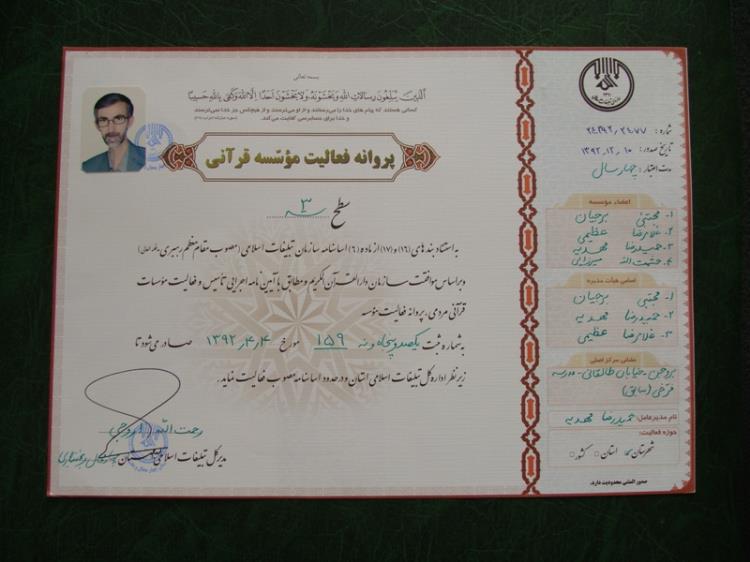 بسمه تعالی
الَّذِینَ یُبَلِّغُونَ رِسَالَاتِ اللَّهِ وَیَخْشَوْنَهُ وَلَا یَخْشَوْنَ أَحَدًا إِلَّا اللَّهَ وَکَفَى بِاللَّهِ حَسِیبًا
کسانی هستند که پیام های خدا را می‌رسانند و از او می‌ترسند و از هیچکس جز خدا نمی‌ترسند
و خدا برای حسابرسی کفایت می‌کند.
پروانه فعالیت مؤسّسه قرآنی
سطح ۳
به استناد بندهای (۱۶) و (۱۷) از ماده (۶) اساسنامه سازمان تبلیغات اسلامی (مصوب مقام معظم رهبری)
و براساس موافقت سازمان دارالقرآن‌الکریم و مطابق با آیین نامه اجرایی تأسیس و فعالیت مؤسسات
قرآنی مردمی، پروانه فعالیت مؤسسه
به شماره ثبت یکصد و پنجاه و نه ۱۵۹ مورخ ۱۳۹۲٫۴٫۴ صادر می‌شود تا
زیر نظر اداره کل تبلیغات اسلامی استان و در حدود اساسنامه مصوب فعالیت نماید.
رحمت الله
مدیر کل تبلیغات اسلامی استان
شماره:
تاریخ صدور: ۱۳۹۲٫۱۲٫۱۰
مدت اعتبار: چهار سال
اعضاء مؤسسه
۱- مجتبی برجیان
۲- غلامرضا عظیمی
۳- حمیدرضا مهدیه
۴- حشمت الله میرزایی
اسامی هیأت مدیره
۱- مجتبی برجیان
۲- حمیدرضا مهدیه
۳- غلامرضا عظیمی
نشانی مرکز اصلی
بروجن - خیابان طالقانی - مدرسه
فرخی (سابق)
نام مدیرعامل: حمیدرضا مهدیه
حوزه فعالیت:
شهرستان استان کشور
مجوز المثنی محدودیت دارد.